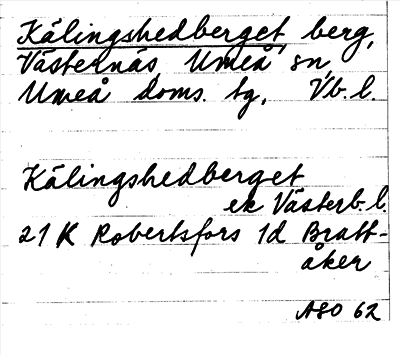 Kälingshedberget, berg,
Västernäs, Umeå sn,
Umeå doms. tg, Vb. l.
Kälingshedberget
ek Västerb. l.
21 K Robertsfors 1d Bratt-
åker
ASO 62